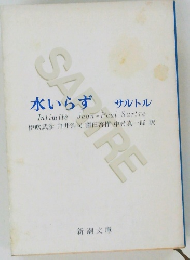 SARTRE
水いらず サルトル
Intimité Jean-Paul Sartre
伊吹武彦 白井浩司 窪田啓作 中村真一郎 訳
新潮文庫